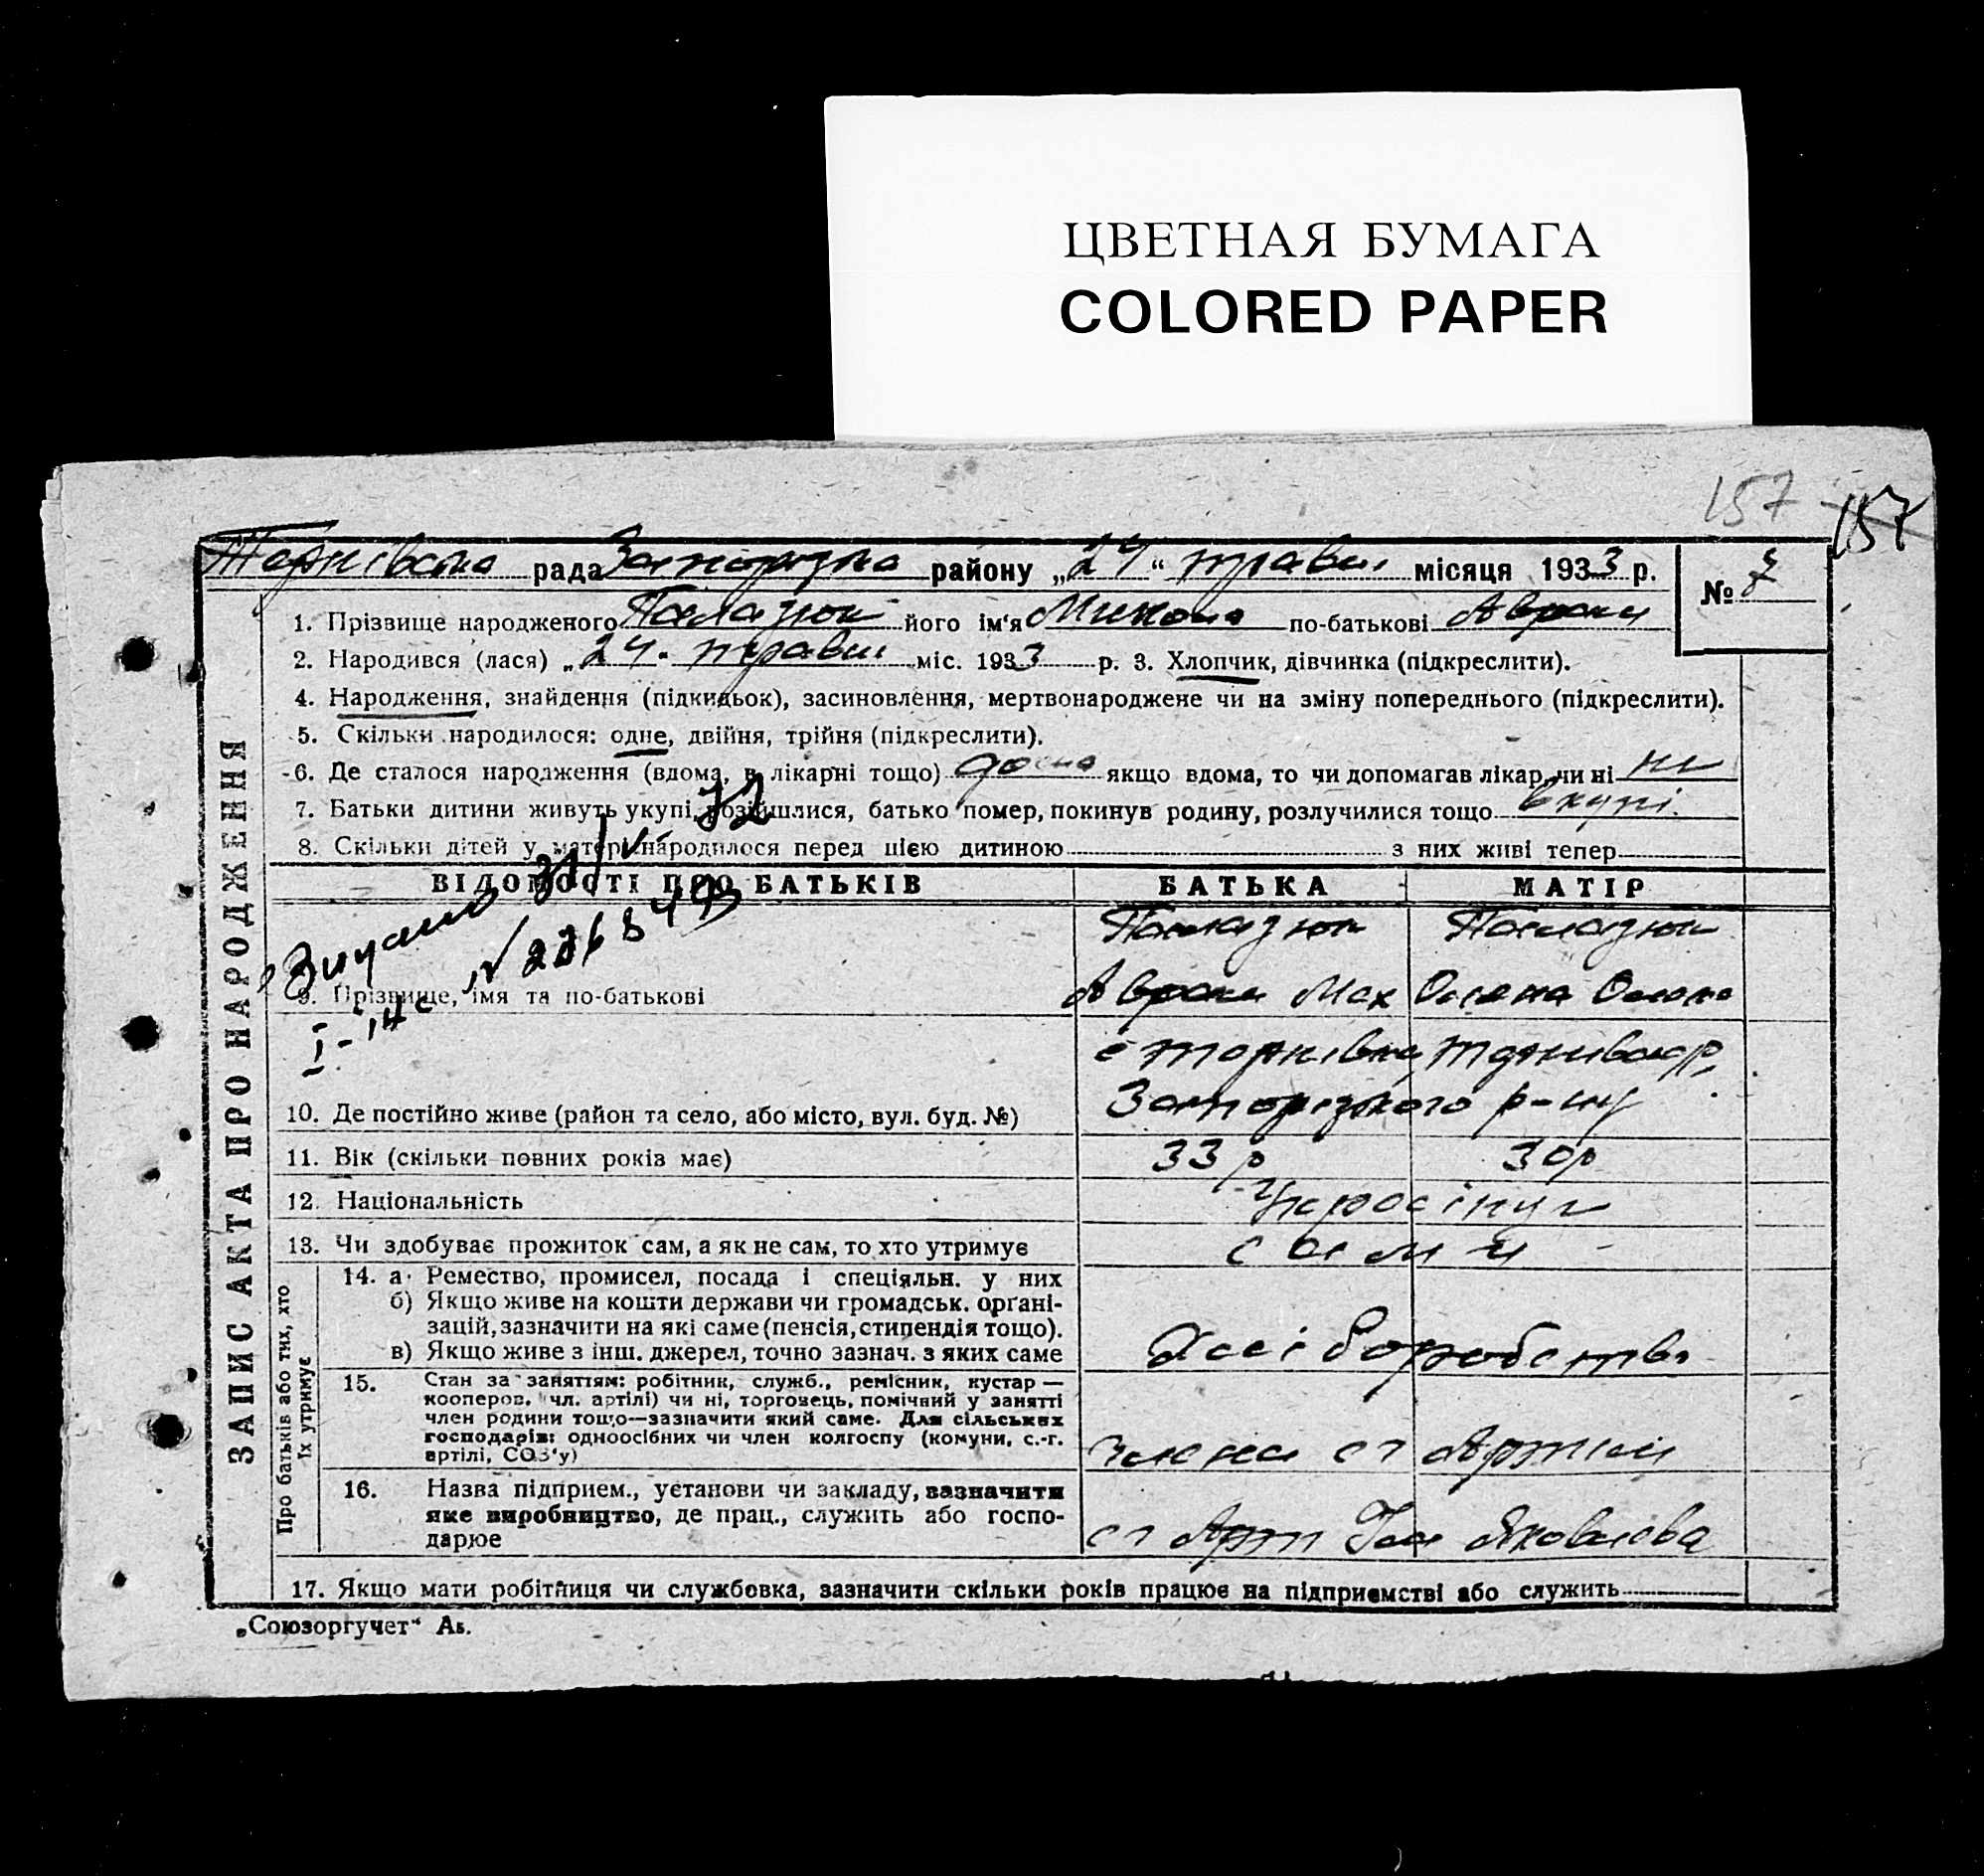 ЦВЕТНАЯ БУМАГА
COLORED PAPER
157 157
рада району „24“ травн місяця 1933 р. № 7
1. Прізвище народженого його ім'я Микола по-батькові Аврам
2. Народився (лася) „24. травн міс. 1933 р. 3. Хлопчик, дівчинка (підкреслити).
4. Народження, знайдення (підкидьок), засиновлення, мертвонароджене чи на зміну попереднього (підкреслити).
5. Скільки народилося: одне, двійня, трійня (підкреслити).
6. Де сталося народження (вдома, в лікарні тощо) дома якщо вдома, то чи допомагав лікар, чи ні ні
7. Батьки дитини живуть укупі, розійшлися, батько помер, покинув родину, розлучилися тощо вкупі.
8. Скільки дітей у матері народилося перед цією дитиною з них живі тепер
ВІДОМОСТІ ПРО БАТЬКІВ БАТЬКА МАТІР
9. Прізвище, імя та по-батькові
Аврам Мах
10. Де постійно живе (район та село, або місто, вул. буд. №)
Запорізького р-ну
11. Вік (скільки повних років має) 33 р 30р
12. Національність
13. Чи здобуває прожиток сам, а як не сам, то хто утримує сами
14. а. Ремество, промисел, посада і спеціяльн. у них
б) Якщо живе на кошти держави чи громадськ. органі-
зацій, зазначити на які саме (пенсія, стипендія тощо).
в) Якщо живе з інш. джерел, точно зазнач. з яких саме
15. Стан за заняттям: робітник, служб., ремісник, кустар —
кооперов. (чл. артілі) чи ні, торговець, помічний у занятті
член родини тощо—зазначити який саме. Для сільських
господарів: одноосібних чи член колгоспу (комуни, с.-г.
артілі, СОЗ'у)
члени сг Артіли
16. Назва підприєм., установи чи закладу, вазначити
яке виробництво, де прац., служить або госпо-
дарює
сг Арт Ім Яковлєва
17. Якщо мати робітниця чи службовка, зазначити скільки років працює на підприємстві або служить
ЗАПИС АКТА ПРО НАРОДЖЕННЯ
Про батьків або тих, хто
їх утримує
„Союзоргучет“ Ав.